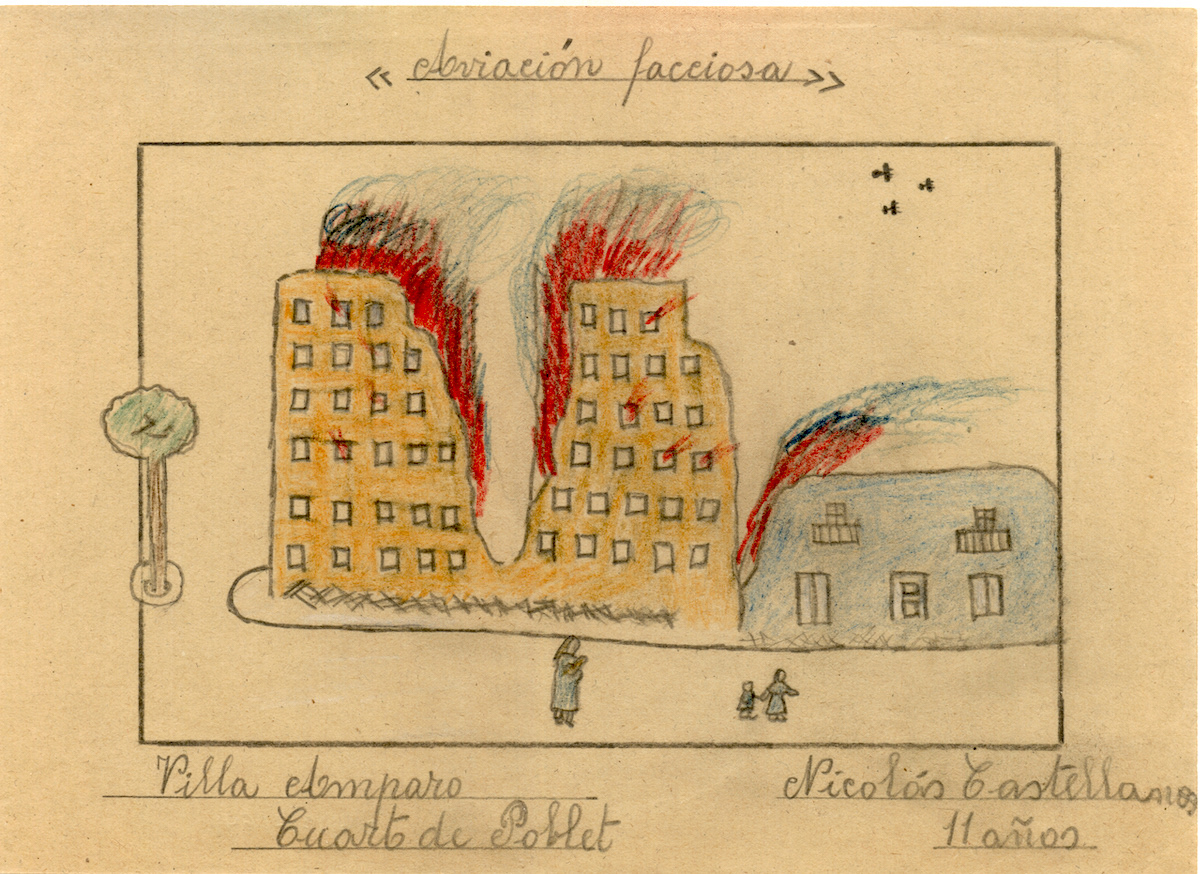 « Aviación facciosa »
Villa Amparo
Cuart de Poblet
Nicolás Castellanos
11 años